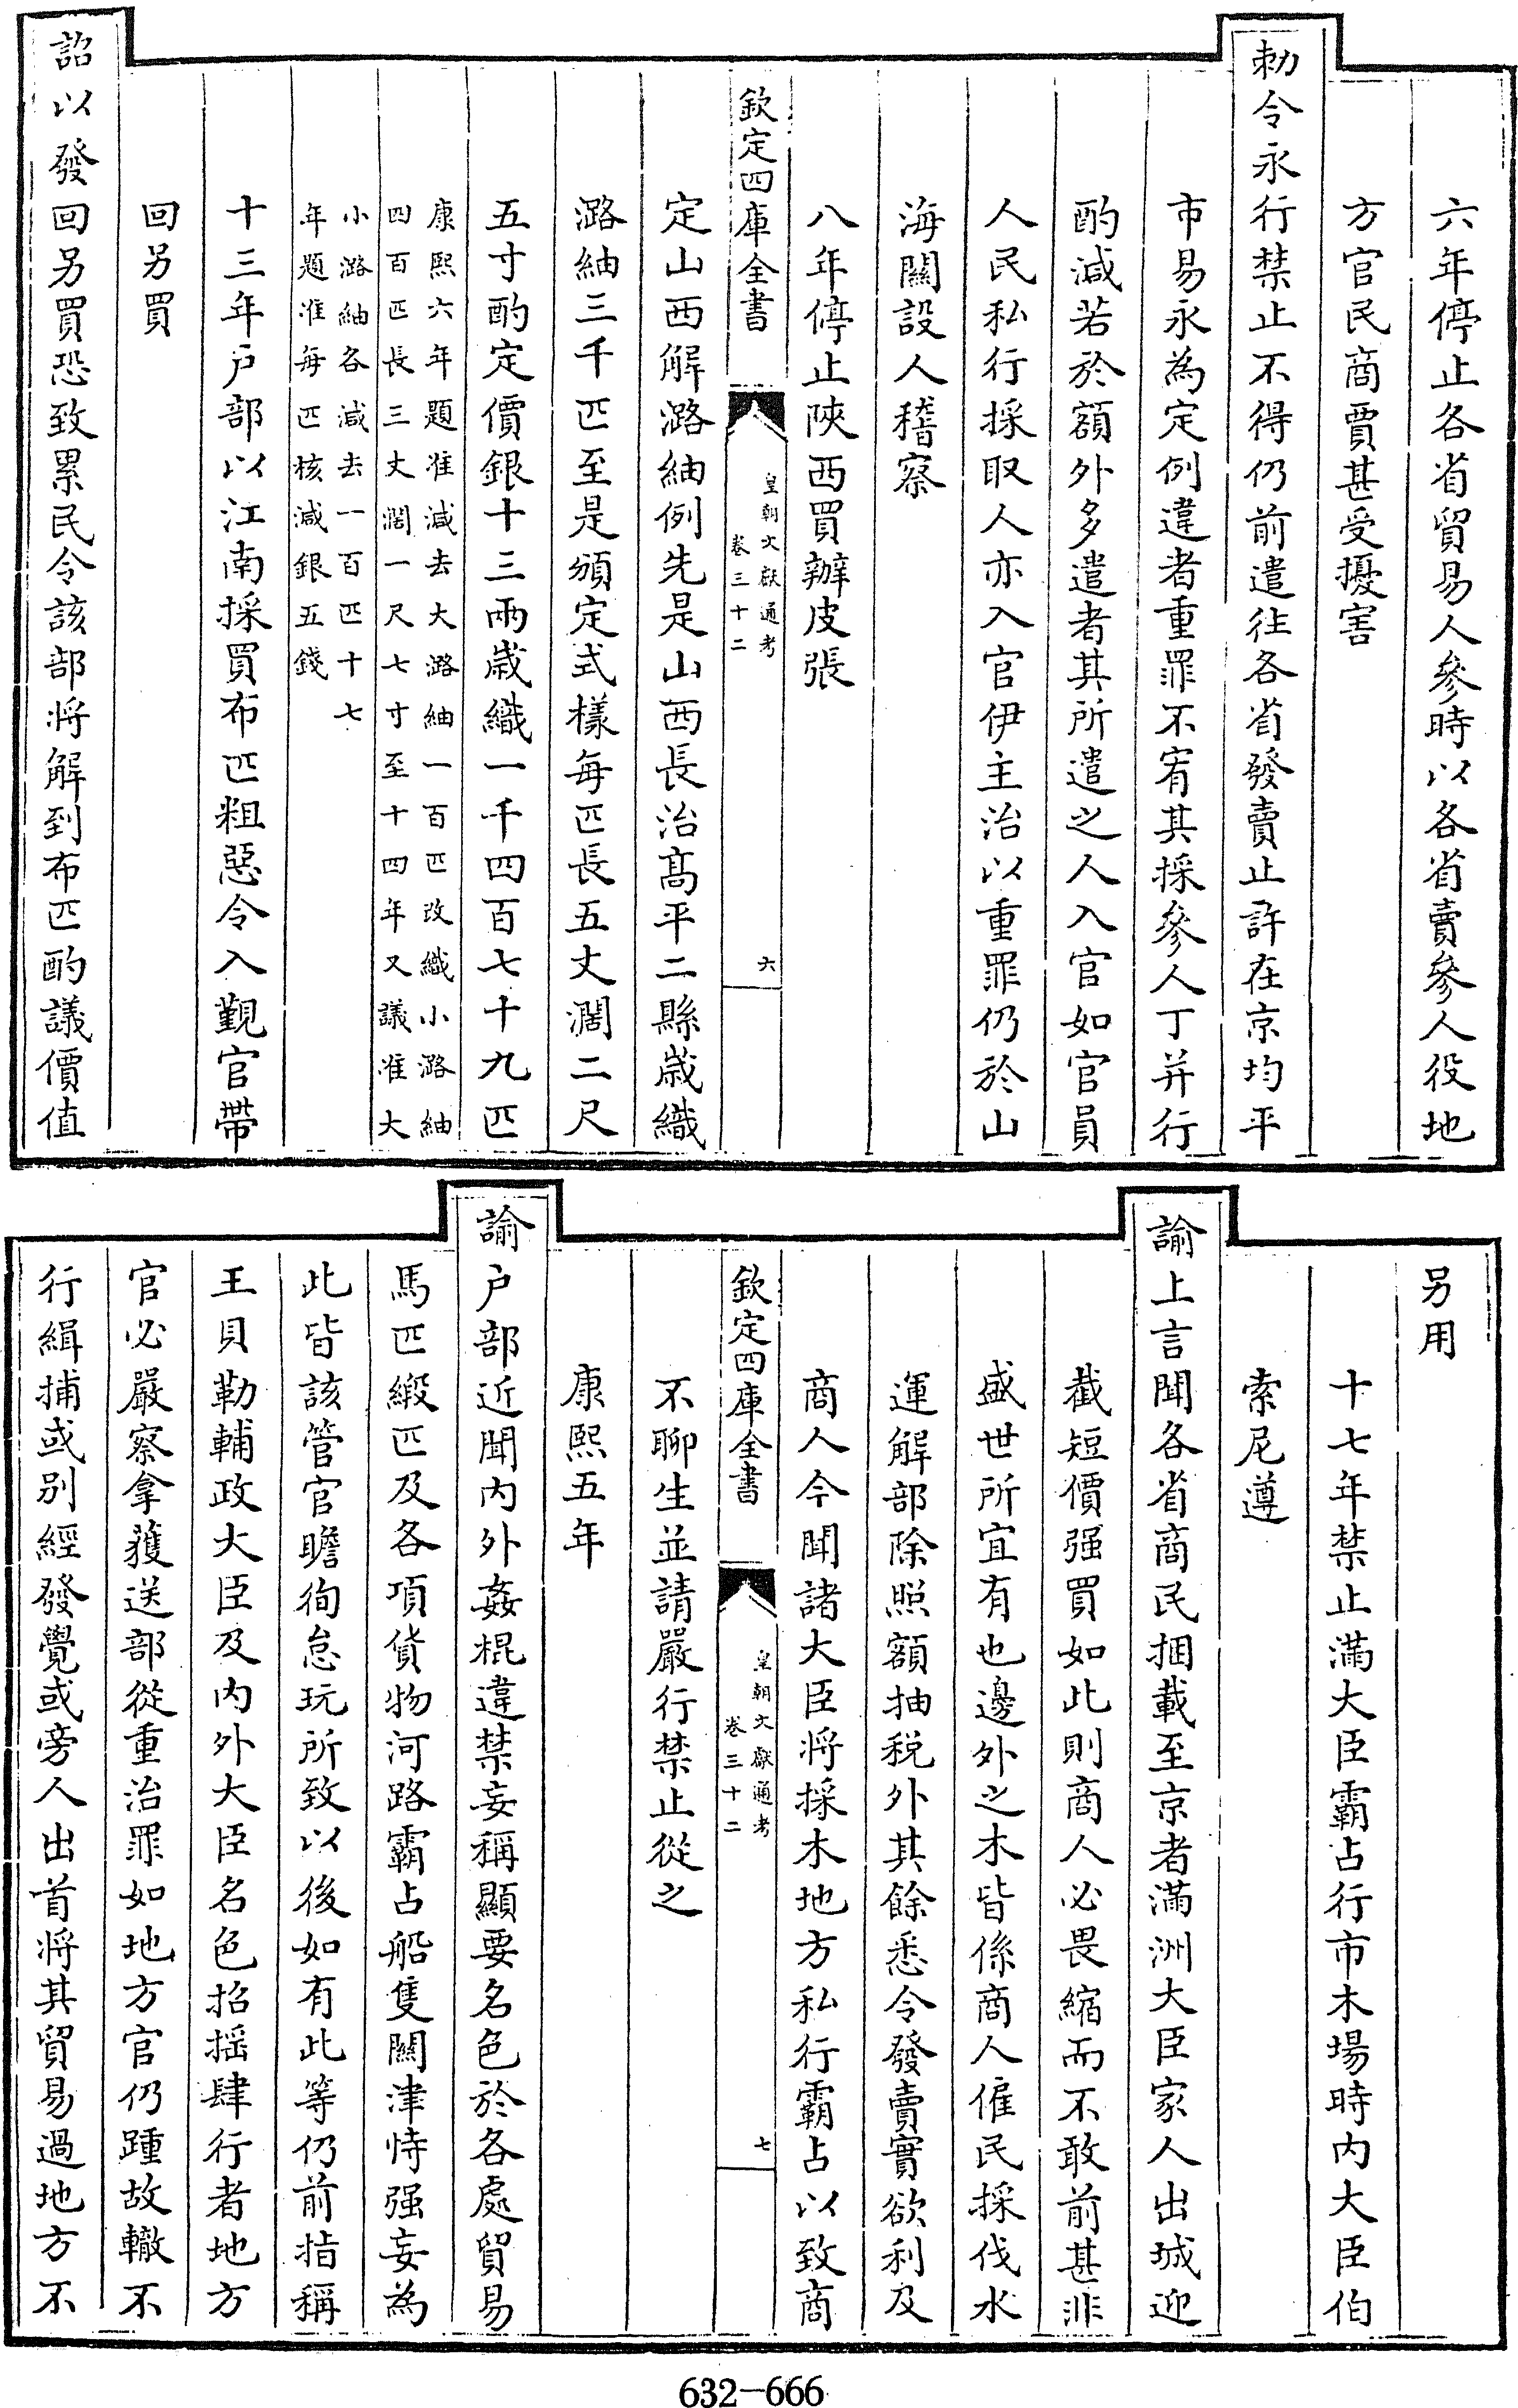 六年停止各省貿易人參時以各省賣參人役地
方官民商賈甚受擾害
勅令永行禁止不得仍前遣往各省發賣止許在京均平
市易永為定例違者重罪不宥其採參人丁并行
酌減若於額外多遣者其所遣之人入官如官員
人民私行採取人亦入官伊主治以重罪仍於山
海關設人稽察
八年停止陜西買辦皮張
欽定四庫全書
皇朝文獻通考
卷三十二
六
定山西解潞紬例先是山西長治髙平二縣歳織
潞紬三千匹至是頒定式様每匹長五丈濶二尺
五寸酌定價銀十三兩歳織一千四百七十九匹
康熙六年題准減去大潞紬一百匹改織小潞紬
四百匹長三丈濶一尺七寸至十四年又議准大
小潞紬各減去一百匹十七
年題准每匹核減銀五錢
十三年户部以江南採買布匹粗惡令入覲官帶
回另買
詔以發回另買恐致累民令該部将解到布匹酌議價值
另用
十七年禁止滿大臣霸占行市木場時内大臣伯
索尼遵
諭上言聞各省商民捆載至京者滿洲大臣家人出城迎
截短價强買如此則商人必畏縮而不敢前甚非
盛世所宜有也邊外之木皆係商人僱民採伐水
運解部除照額抽税外其餘悉令發賣實欲利及
商人今聞諸大臣将採木地方私行霸占以致商
欽定四庫全書
皇朝文獻通考
卷三十二
七
不聊生並請嚴行禁止從之
康熙五年
諭户部近聞内外姦棍違禁妄稱顯要名色於各處貿易
馬匹緞匹及各項貨物河路霸占船隻關津恃强妄為
此皆該管官瞻徇怠玩所致以後如有此等仍前指稱
王貝勒輔政大臣及内外大臣名色招揺肆行者地方
官必嚴察拿獲送部從重治罪如地方官仍踵故轍不
行緝捕或别經發覺或旁人出首将其貿易過地方不
632-666